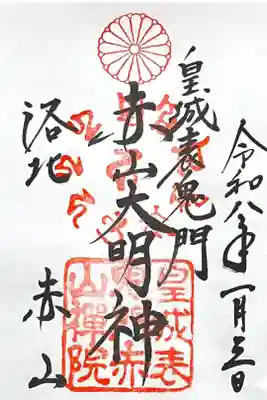 令和八年一月三日
皇城表鬼門
赤山大明神
洛北 赤山
皇城表
鬼門赤
山禪院